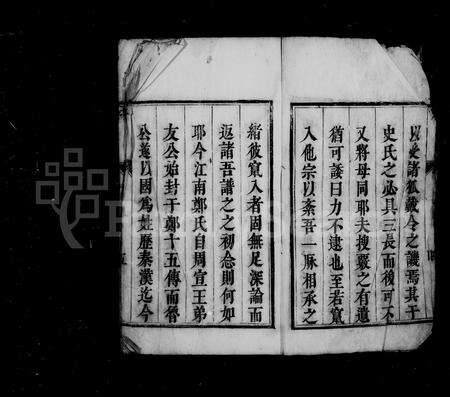 以受諸狐裁令之譏焉其于
史氏之必具三長而後可不
又將毋同耶夫搜嚴之有遺
猶可諉曰力不逮也至若竄
入他宗以紊吾一脉相承之
緒彼竄入者固無足深論而
返諸吾譜之之初念則何如
耶今江南鄭氏自周宣王弟
友公始封于鄭十五傳而晉
公遂以國爲姓歷秦漢迄今